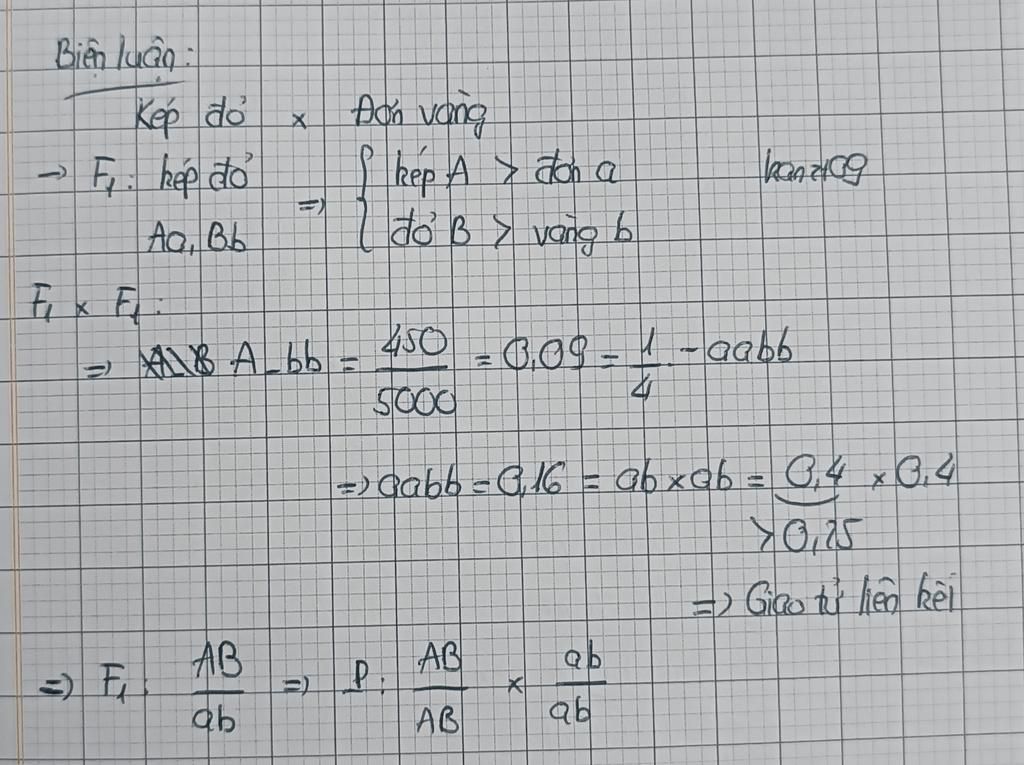 Biện luận:
Kép đỏ × Đơn vàng
→ F₁: kép đỏ ⇒ { kép A > đơn a
Aa, Bb { đỏ B > vàng b
F₁ × F₁:
⇒ A_bb = 450/5000 = 0,09 = 1/4 - aabb
⇒ aabb = 0,16 = ab × ab = 0,4 × 0,4
> 0,25
⇒ Giao tử liên kết
⇒ F₁: AB/ab ⇒ P: AB/AB × ab/ab